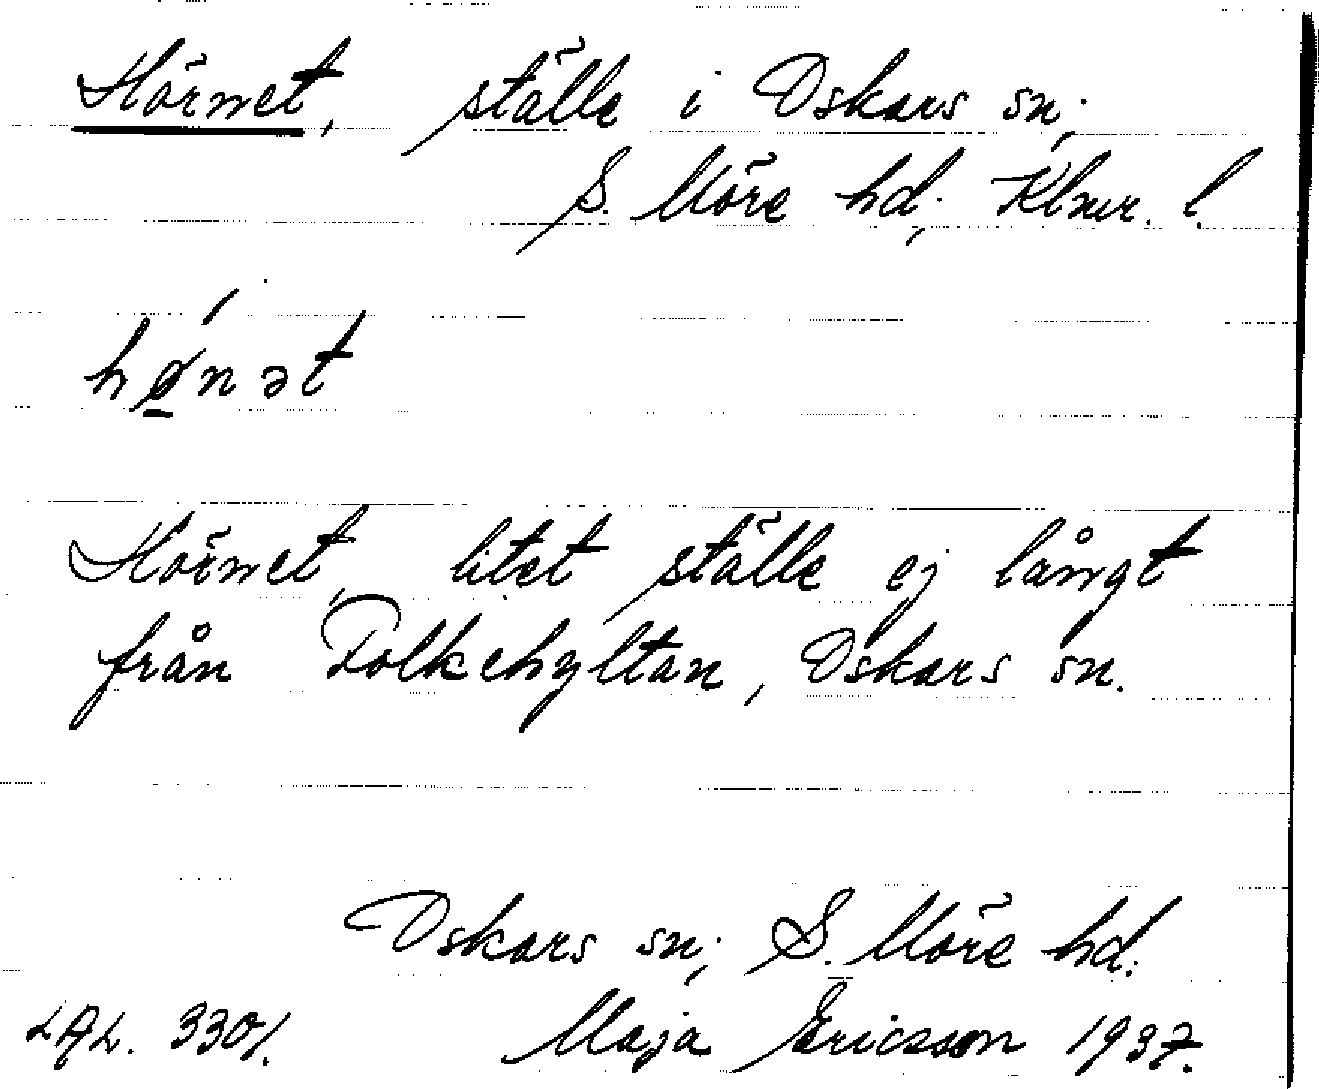 Hörnet, ställe i Oskars sn;
S. Möre hd; Klmr. l.
hǿ̱nət
Hörnet, litet ställe ej långt
från Folkehyltan, Oskars sn.
Oskars sn; S. Möre hd.
LAL. 3301. Maja Ericsson 1937.